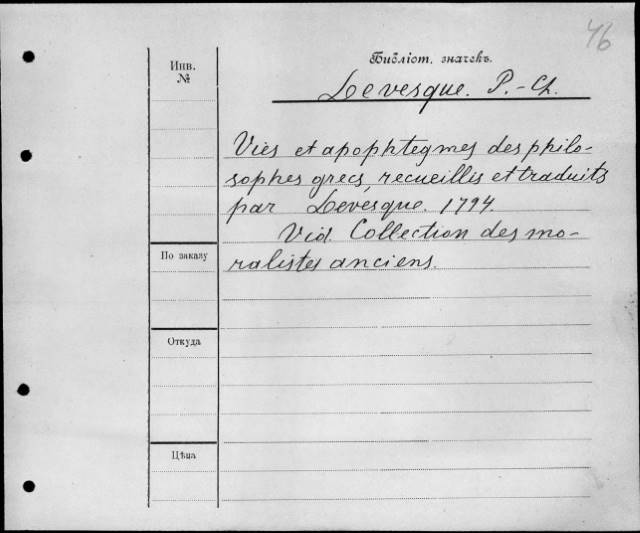 46
Библіот. значекъ.
Инв.
№
Levesque. P.-Ch.
Vies et apophtegmes des philo-
sophes grecs, recueillis et traduits
par Levésque. 1794.
Vid. Collection des mo-
ralistes anciens.
По заказу
Откуда
Цѣна